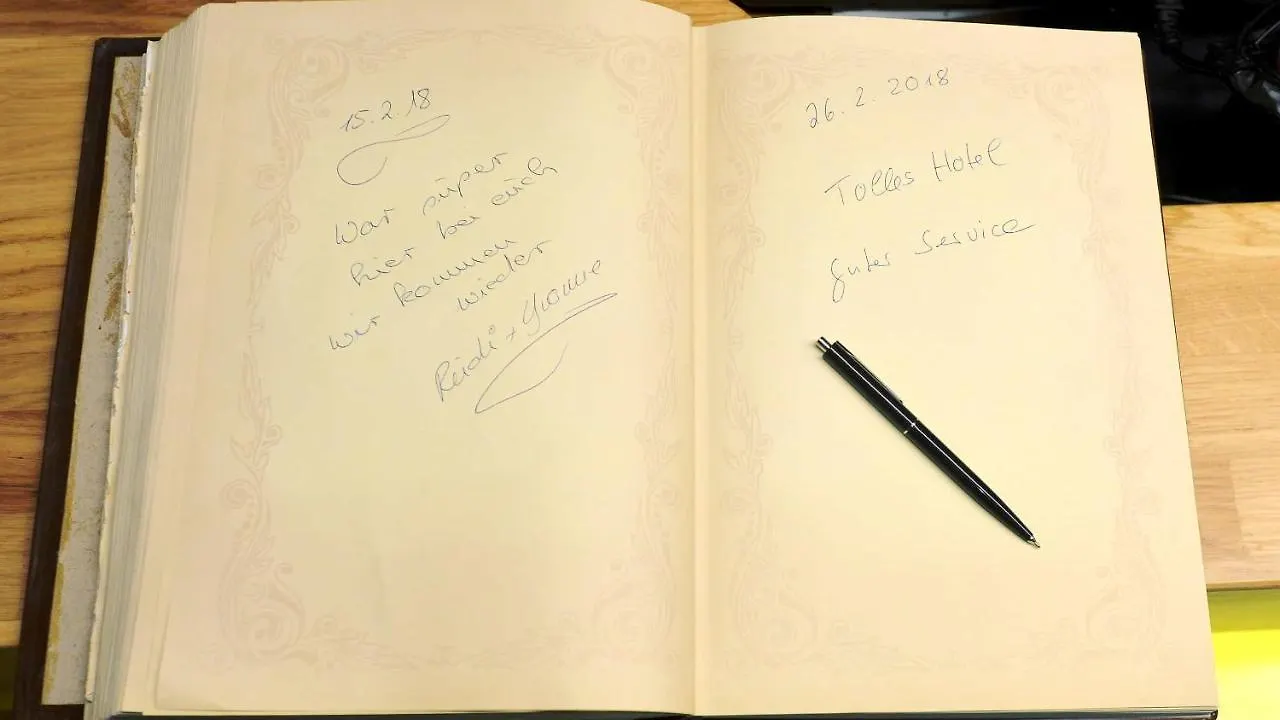 15.2.18
War super
hier bei euch
wir kommen
wieder
Rüdi + Yvonne
26.2.2018
Tolles Hotel
guter Service